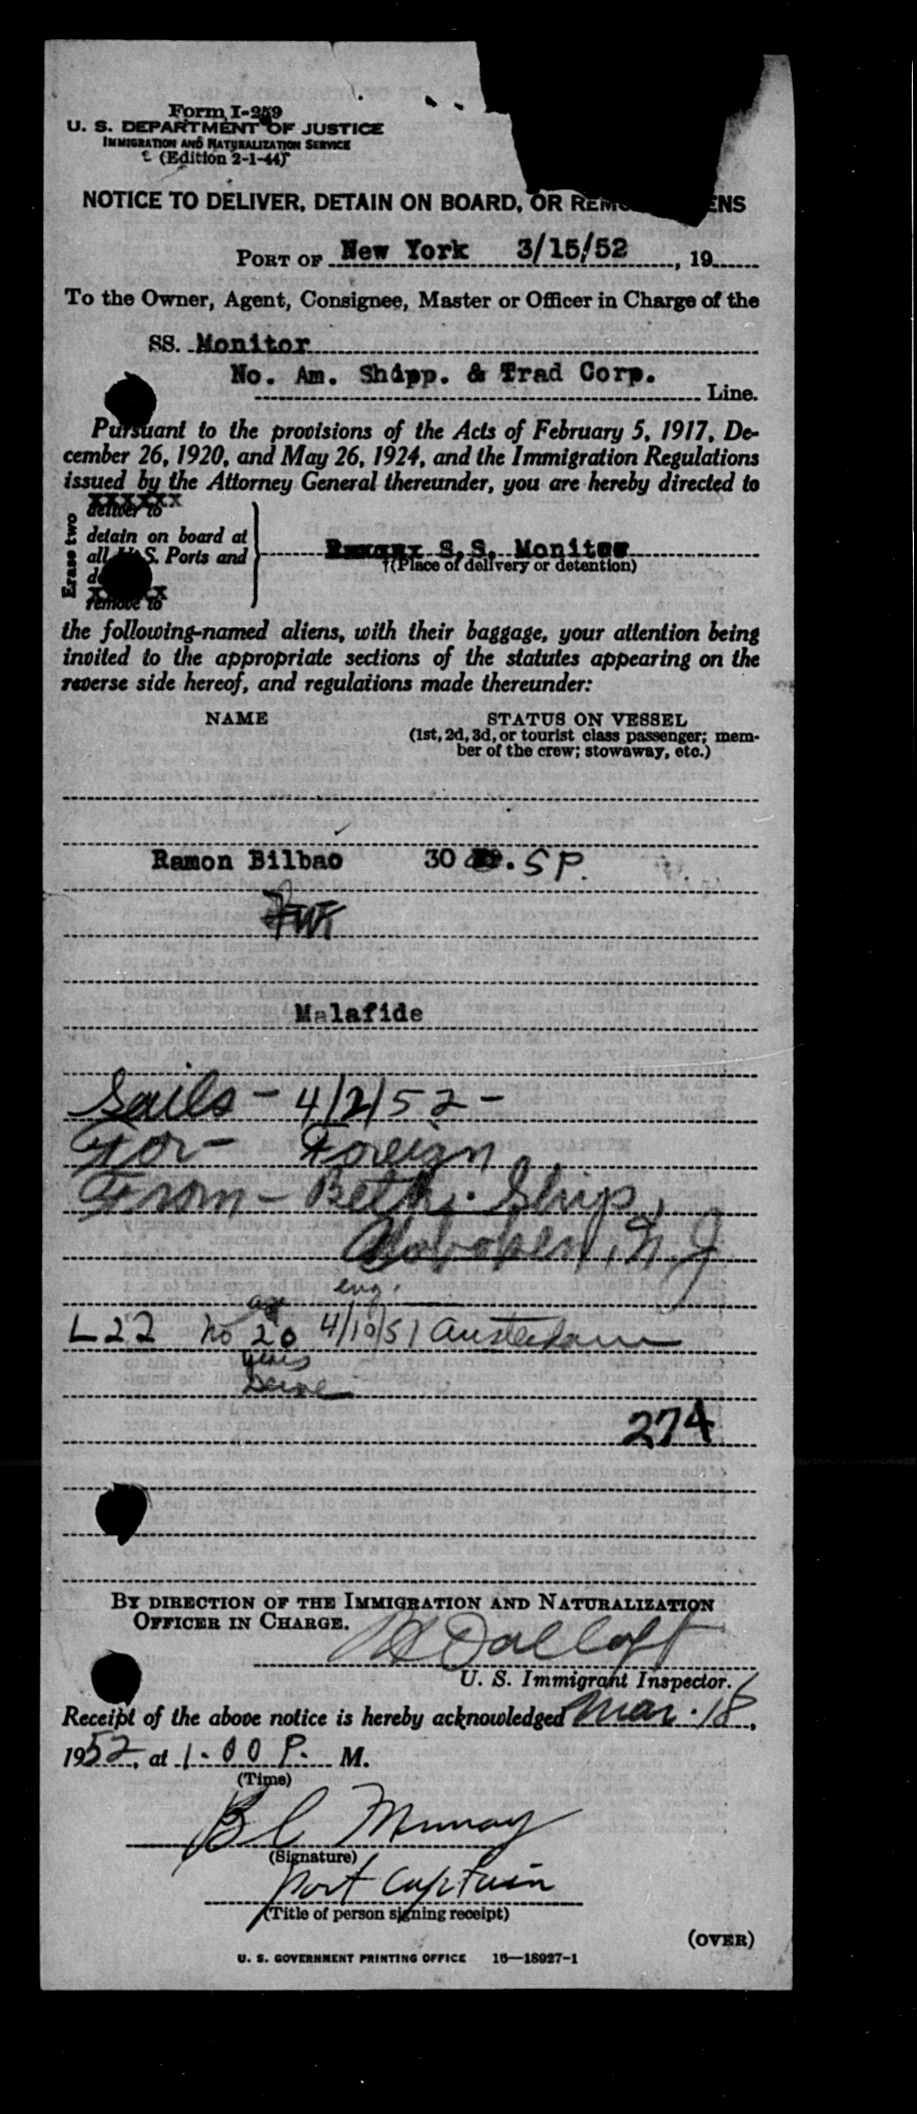 Form I-259
U. S. DEPARTMENT OF JUSTICE
IMMIGRATION AND NATURALIZATION SERVICE
(Edition 2-1-44)
NOTICE TO DELIVER, DETAIN ON BOARD, OR
PORT OF New York 3/15/52, 19
To the Owner, Agent, Consignee, Master or Officer in Charge of the
SS. Monitor
No. Am. Shipp. & Trad Corp.
Line.
Pursuant to the provisions of the Acts of February 5, 1917, De-
cember 26, 1920, and May 26, 1924, and the Immigration Regulations
issued by the Attorney General thereunder, you are hereby directed to
Erase two
deliver to
detain on board at
all U.S. Ports and
remove to
S.S. Monitor
(Place of delivery or detention)
the following-named aliens, with their baggage, your attention being
invited to the appropriate sections of the statutes appearing on the
reverse side hereof, and regulations made thereunder:
NAME
STATUS ON VESSEL
(1st, 2d, 3d, or tourist class passenger; mem-
ber of the crew; stowaway, etc.)
Ramon Bilbao 30 SP.
Malafide
Sails - 4/2/52 -
For - Foreign
From - Beth. Ship,
Hoboken, N.J
eng.
age
L22 no 20 4/10/51 Amsterdam
years
274
BY DIRECTION OF THE IMMIGRATION AND NATURALIZATION
OFFICER IN CHARGE.
U. S. Immigrant Inspector.
Receipt of the above notice is hereby acknowledged Mar. 18,
1952, at 1.00 P. M.
(Time)
B C Murray
(Signature)
Port Captain
(Title of person signing receipt)
(OVER)
U. S. GOVERNMENT PRINTING OFFICE 16—18927-1